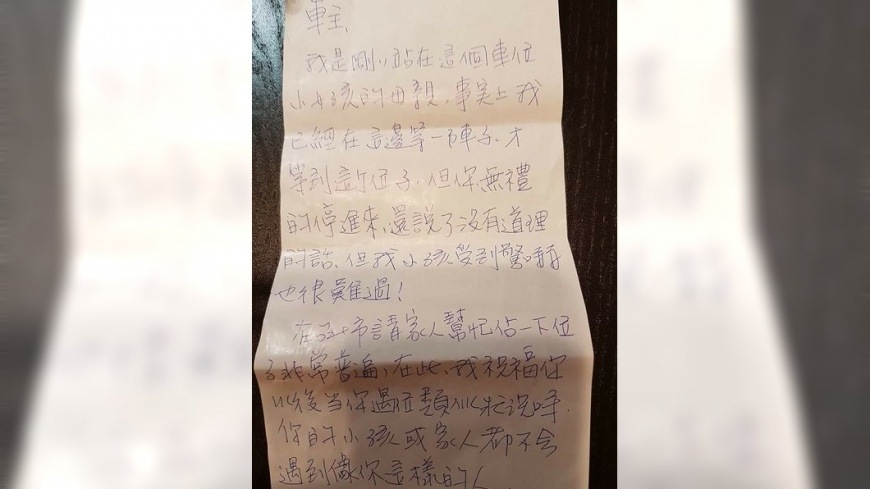 車主,
我是剛剛站在這個車位
小女孩的母親,事實上我
已經在這邊等一下陣子,才
等到這個位子,但你無禮
的停進來,還說了沒有道理
的話,但我小孩受到驚嚇
也很難過!
在 市請家人幫忙佔一下位
子非常普遍,在此,我祝福你
以後當你遇位類似狀況時,
你的小孩或家人都不會
遇到像你這樣的人